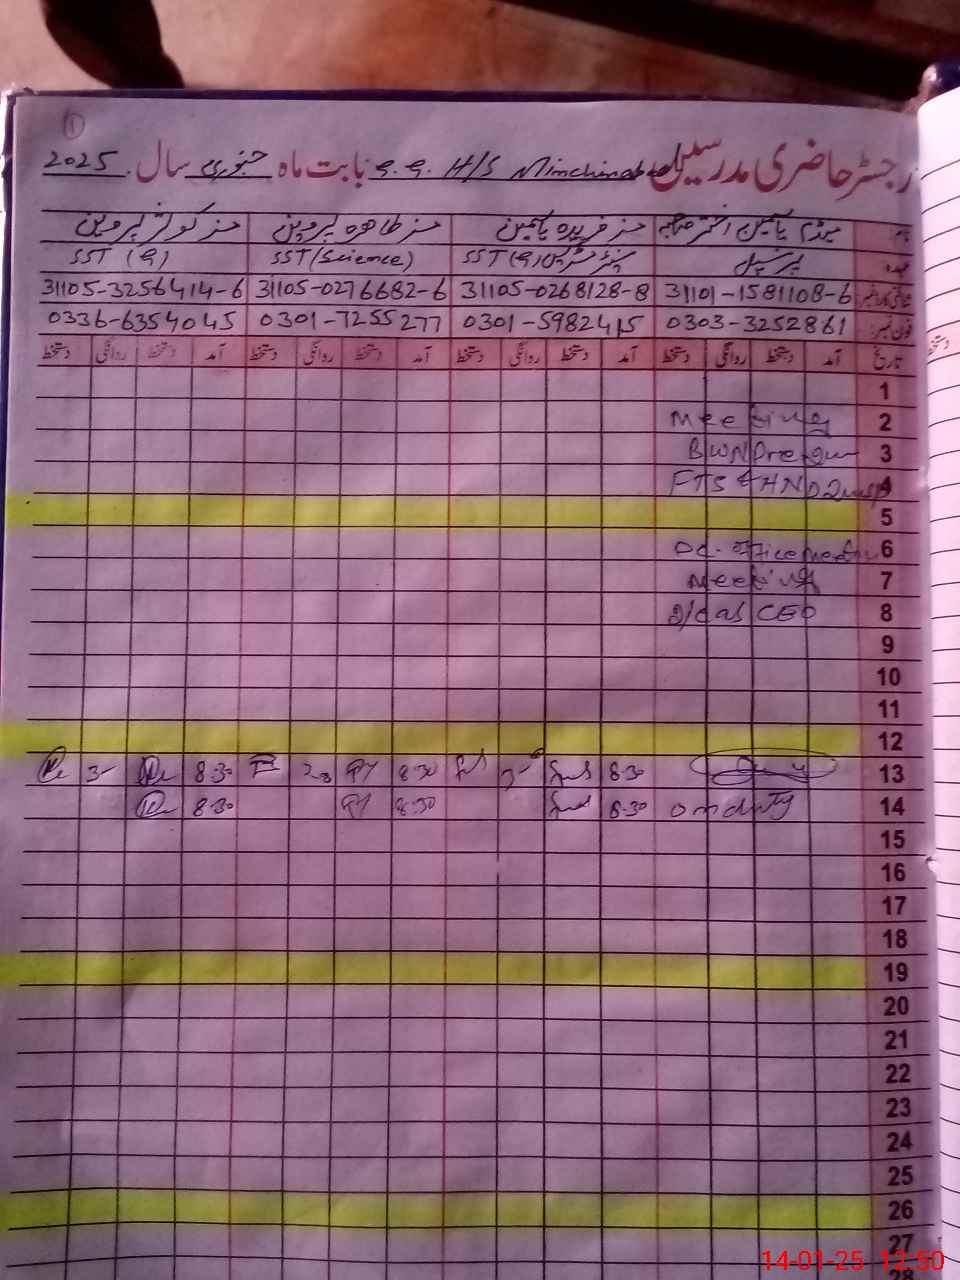 1
رجسٹر حاضری مدرسین G.G. H/S Minchinabad بابت ماہ جنوری سال 2025
نام میڈم یاسمین اختر صاحبہ مسز فریدہ یاسمین مسز طاہرہ پروین مسز کوثر پروین
عہدہ پرنسپل SST (G) SST (Science) SST (G)
شناختی کارڈ نمبر 31101-1581108-6 31105-0268128-8 31105-0276682-6 31105-3256414-6
فون نمبر: 0303-3252861 0301-5982415 0301-7255277 0336-6354045
تاریخ آمد دستخط روانگی دستخط آمد دستخط روانگی دستخط آمد دستخط روانگی دستخط آمد دستخط روانگی دستخط
1
2 Meeting
3 BWN
4 FTS & HND
5
6 DC. office meeting
7 Meeting
8 CEO
9
10
11
12
13 8.30 8.30 8.30
14 on duty 8.30 8.30 8.30
15
16
17
18
19
20
21
22
23
24
25
26
27
28
دستخط
14-01-25 12:50